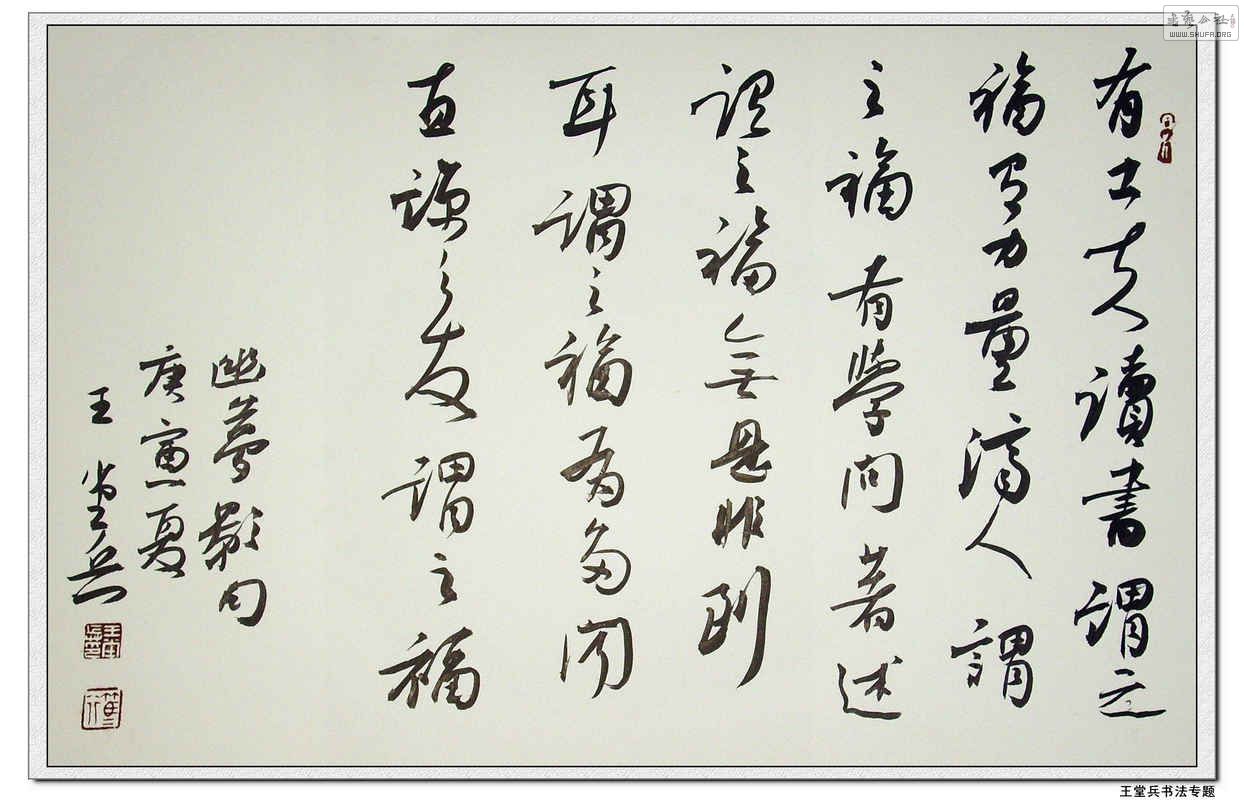 有工夫讀書謂之
福有力量濟人謂
之福有學問著述
謂之福無是非到
耳謂之福有多聞
直諒之友謂之福
幽夢影句
庚寅夏
王堂兵
WWW.SHUFA.ORG
王堂兵书法专题